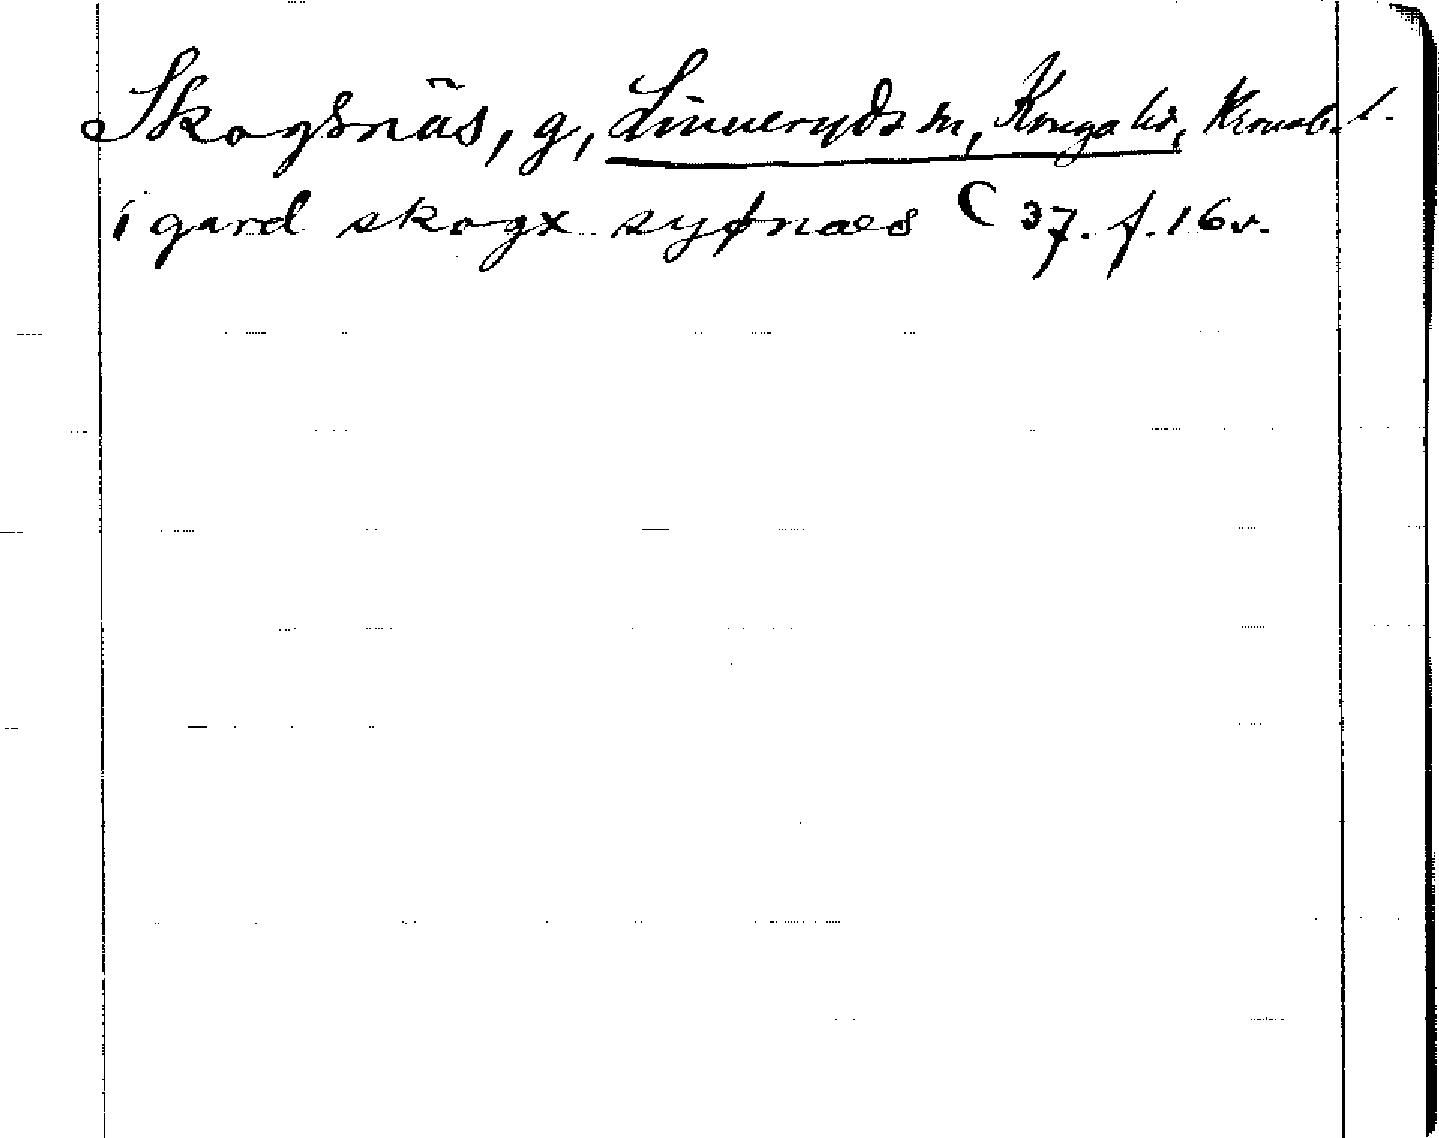 Skogsnäs, g, Linneryds sn, Konga hd, Kronob. l.
i gard skogx syønæs C 37. f. 16v.